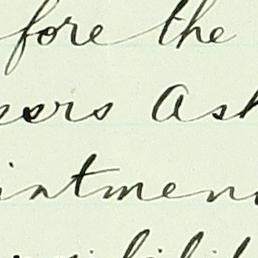 fore the
sers Ash
intmen